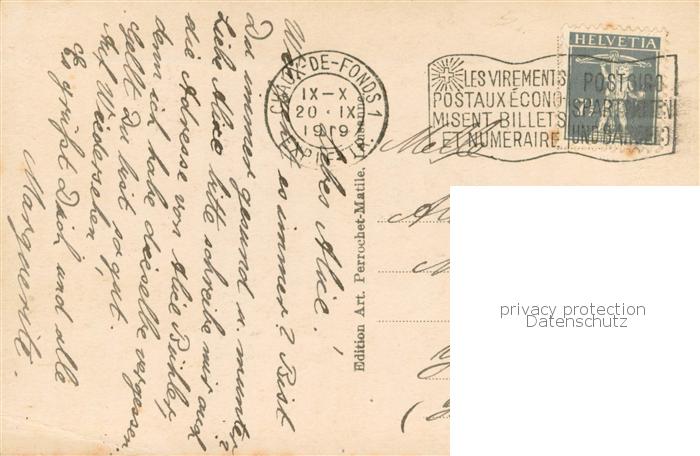 Liebes Alice!
Wie geht es immer? Bist
Du immer gesund u. munter?
Liebe Alice bitte schreibe mir auch
die Adresse von Alice Bühler,
denn ich habe dieselbe vergessen.
Gellt Du bist so gut.
Auf Wiedersehen,
Es grüßt Dich und alle
Marguerite.
Edition Art. Perrochet-Matile, Lausanne
CHAUX-DE-FONDS 1
IX-X
20·IX
1919
EXP. LET.
LES VIREMENTS
POSTAUX ÉCONO
MISENT BILLETS
ET NUMÉRAIRE
POSTGIRO
SPART NOTEN
UND BARGELD
HELVETIA
privacy protection
Datenschutz